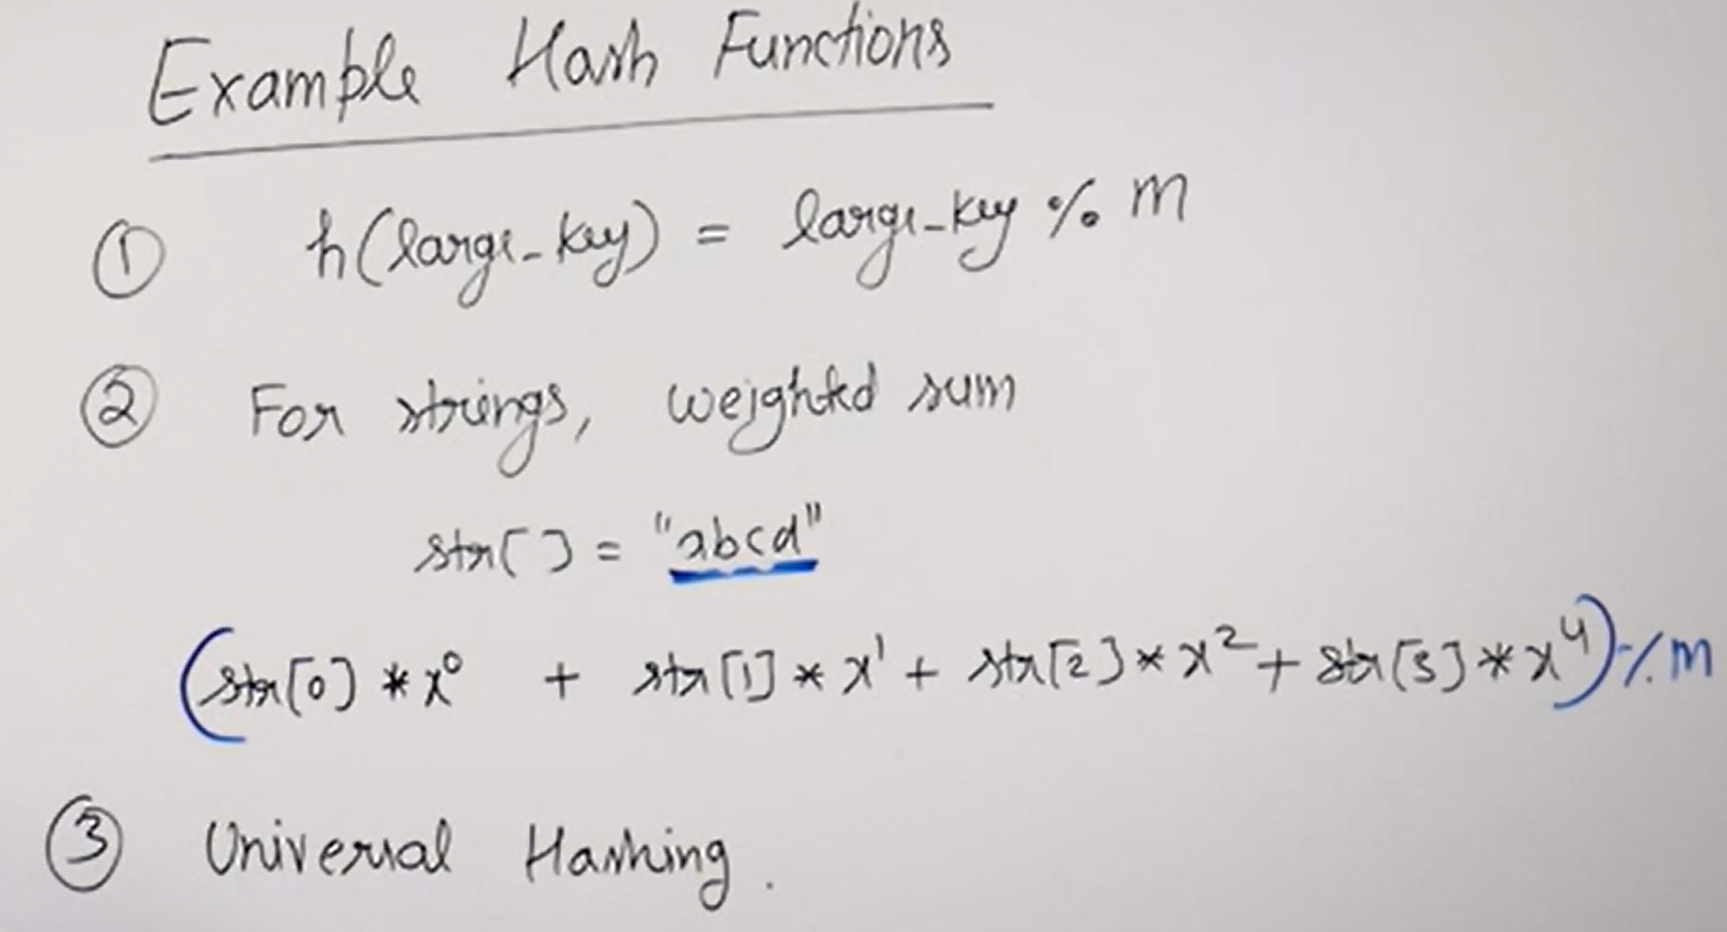 Example Hash Functions
① h(large_key) = large_key % m
② For strings, weighted sum
str[] = "abcd"
(str[0] * x⁰ + str[1] * x¹ + str[2] * x² + str[3] * x⁴) % m
③ Universal Hashing.